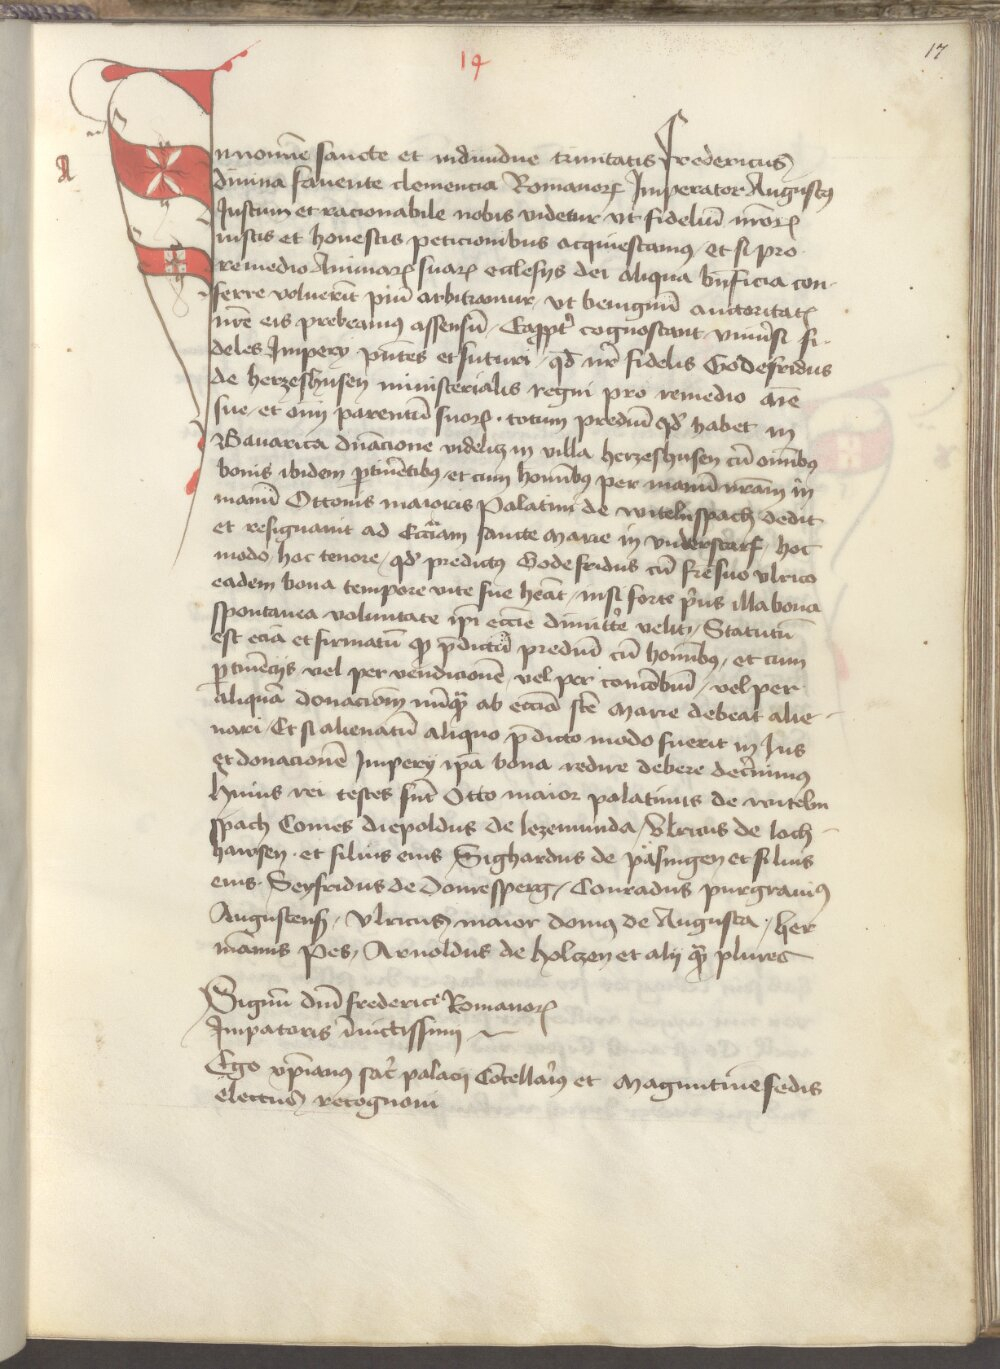 14
17
A
In nomīe sancte et indiuidue trinitatis Fredericus
diuina fauente clemencia Romanorꝝ Imperator Augustus
Justum et racionabile nobis videtur vt fideliū nrōrꝝ
iustis et honestis peticionibus acquiescamus et si pro
remedio Animarꝝ suarꝝ ecclesijs dei aliqua bn̄ficia con-
ferre voluerīt piū arbitramur vt benignū auctoritatꝭ
nrē eis prebeamus assensū / Eapptꝰ cognoscant vniūsi fi-
deles Impery pn̄tes et futuri / qd̄ nr̄ fidelis Godefridus
de herzeshusen ministerialis regni pro remedio aīe
sue / et oīm parentū suorꝝ . totum prediū qd̄ habet in
Bauarica dn̄acione videlicꝫ in villa herzeshusen cū omībꝰ
bonis ibidem ptinētibꝰ et cum homībꝰ per manū nrām in
manū Ottonis maioris Palatini de witelnspach dedit
et resignauit ad Eccīam sancte Marie in vnderstorf / hoc
modo / hoc tenore / qd̄ predictꝰ Godefridus cū frē suo vlrico
eadem bona tempore vite sue hēāt / nisi forte pꝰus illa bona
spontanea voluntate ipī eccīe dimittꝰe velītꝫ / Statutū
est eciā et firmatū qꝫ p̄dictū prediū cū homībꝰ / et cum
ptinēcijs vel per vendicionē / vel per concābiū / vel per
aliquā donacioēm nūqꝫ ab eccīā scē Marie debeat alie-
nari / Et si alienatū aliquo p̄dicto modo fuerit in Jus
et donacionē Impery ipā bona redire debere decꝰnimus
Huius rei testes sūt Otto maior palatinus de witeln
spach Comes diepoldus de lezemunda / Vlricus de loch-
hawsen . et filius eius Sighardus de päsingen et filius
eius . Seyfridus de Donresperg / Conradus purgrauiꝰ
Augustenß / Vlricus maior domꝰ de Augusta / her
mānus Pes / Arnoldus de holczen et alij qꝫ plures
Signū dn̄i frederici Romanorꝝ
Impatoris īuictissimi
Ego xp̄ianus sacꝰ palacij Cancellarꝰ et Maguntine sedis
electus recognoui